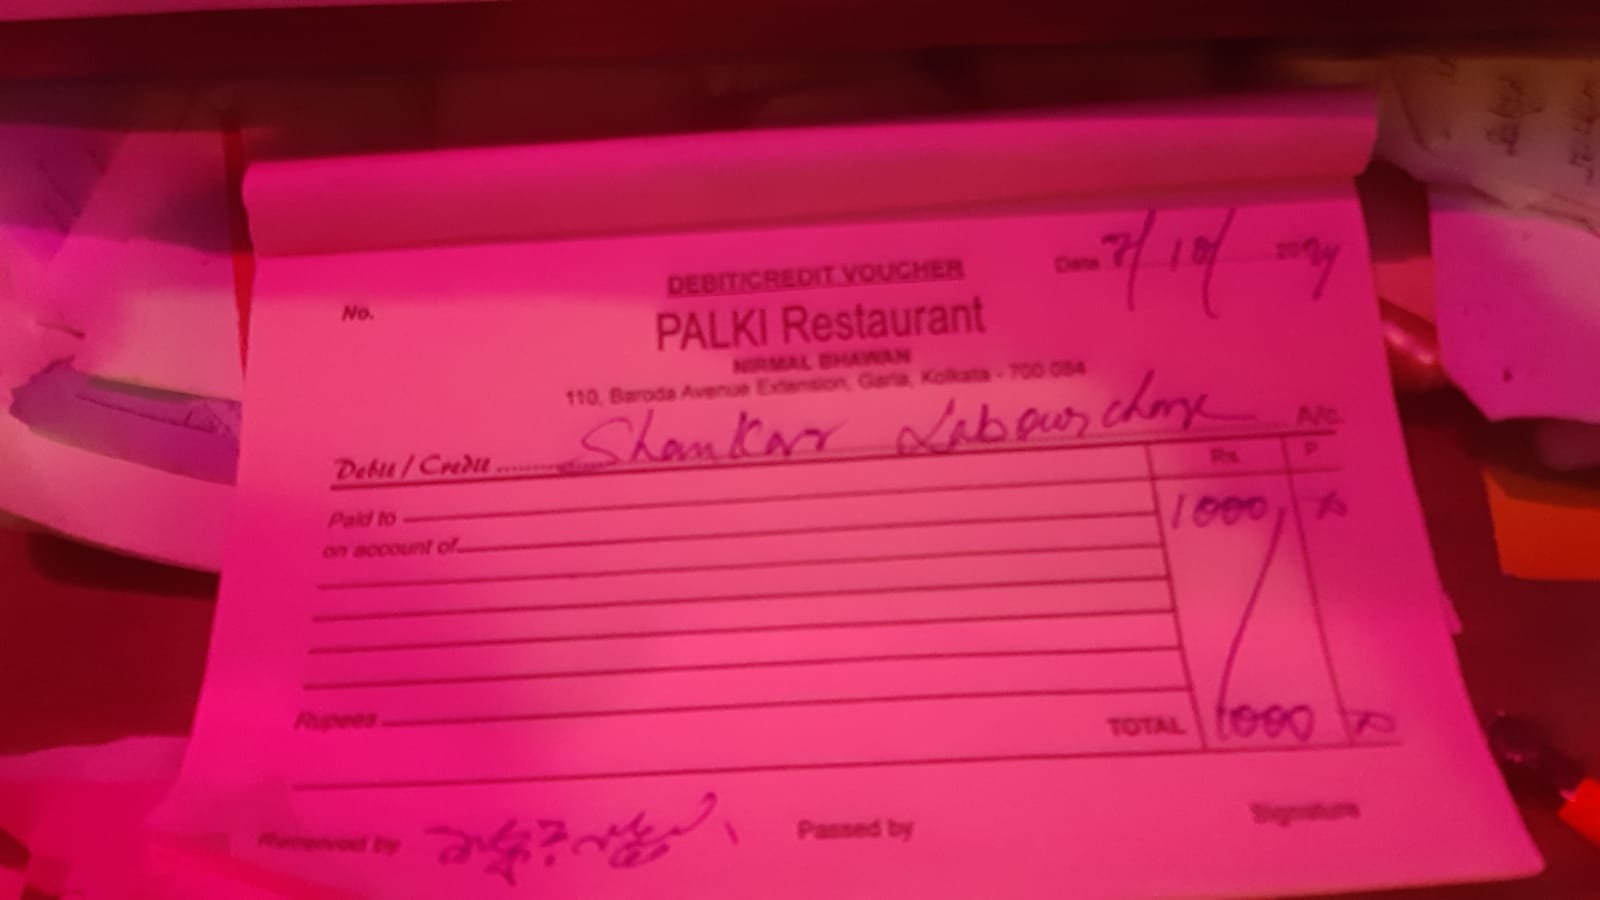 DEBIT/CREDIT VOUCHER
No.
Date 7/10/2024
PALKI Restaurant
NIRMAL BHAWAN
110, Baroda Avenue Extension, Garia, Kolkata - 700 084
Debit / Credit Shankar Labour charge A/c.
Rs. P.
Paid to 1000
on account of
Rupees TOTAL 1000
Received by Passed by Signature